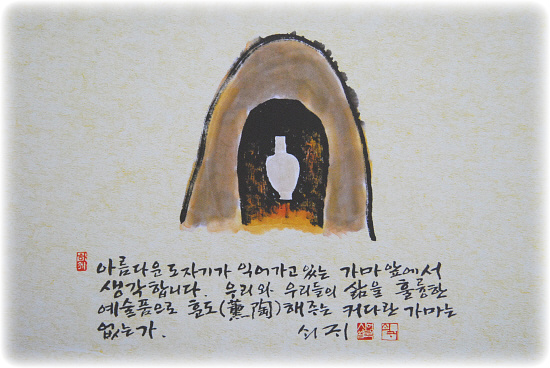 아름다운 도자기가 익어가고 있는 가마 앞에서
생각합니다. 우리와 우리들의 삶을 훌륭한
예술품으로 훈도(薰陶)해주는 커다란 가마는
없는가.